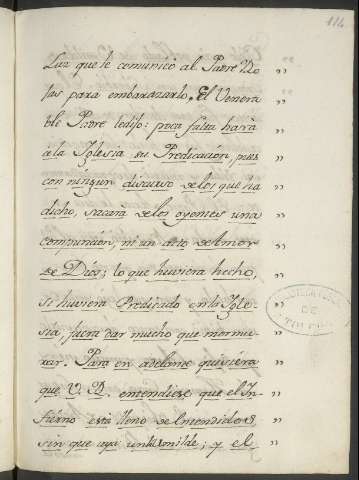 114
Luz que le comunicó al Padre Vo „
tas para embarazarlo. El Venera „
ble Padre ledijo: poca falta hará „
à la Yglesia su Predicacion, pues „
con ningun discurso delos que ha „
dicho, sacará delos oyentes una „
compuncion, ni un acto de Amor „
de Dios; lo que huviera hecho, „
si huviera Predicado en la Ygle- „
sia, fuera dar mucho que mormu- „
rar. Para en adelante quisiera „
que V. R. entendiese que el In- „
fierno està lleno de Entendidos, „
sin que aya un humilde; y el „
DE